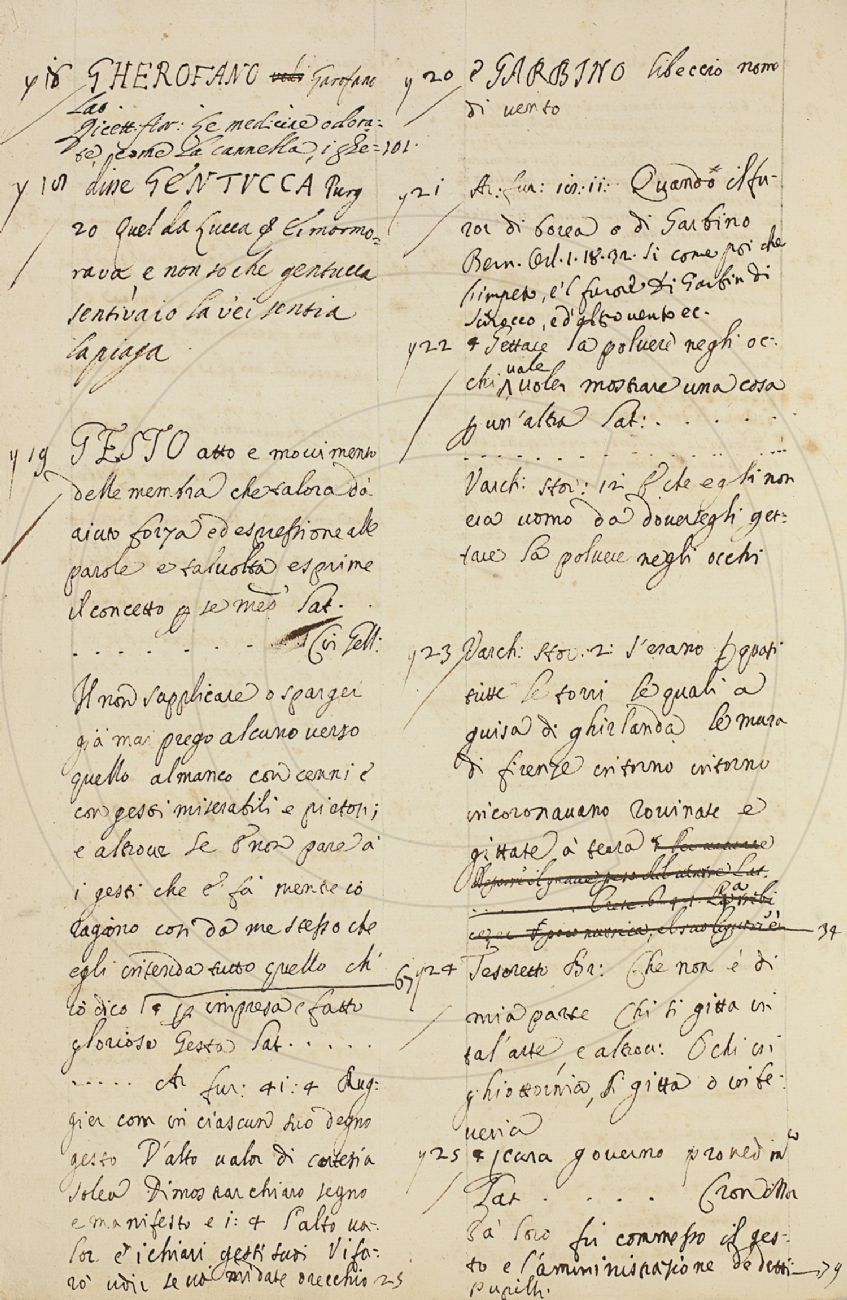 y 18 GHEROFANO Garofano
Lat.
Ricett. fior: Le medicine odora=
te, come la cannella, i ghe= 101.
y 18 disse GENTUCCA Purg
20 Quel da Lucca Et ei mormo=
rava, e non so che gentucca
sentiva io la v'ei sentia
la piaga
y 19 GESTO atto e movimento
delle membra che talora dà
aiuto forza ed espressione alle
parole e talvolta esprime
il concetto p se med° Lat. .
. . . . . . . Cin Gell:
Il non supplicare o sparger
già mai prego alcuno verso
quello almanco con cenni e
con gesti miserabili e pietosi;
e altrove Se non pare à
i gesti che e' fà mentre io
ragiono così da me stesso che
egli intenda tutto quello ch'
io dico 67
impresa e fatto
glorioso Gesta Lat. . . . .
. . . . . Ar fur: 41: 4 Rug-
gier com in ciascun suo degno
gesto D'alto valor di cortesia
solea Dimostrar chiaro segno
e manifesto e i: 4 L'alto va-
lor e i chiari gesti suoi Vi fa-
rò udir se voi mi date orecchio 25
y 20 e GARBINO libeccio nome
di vento
y 21 Ar: fur: Quando il fu-
ror di borea o di Garbino
Bern. Orl. 1. 18. 32. Si come poi che
l'impeto, e'l furor di Garbin di
Scirocco, e d'altro vento ec.
y 22 4 Gettare la polvere negli oc-
chi vale voler mostrare una cosa
p un'altra Lat: . . . . . .
. . . . . . . . . . . . .
Varch: stor: 12 che egli non
era uomo da doversegli get-
tare la polvere negli occhi
y 23 Varch: stor. 2: S'erano quasi
tutte le torri le quali a
guisa di ghirlanda le mura
di firenze intorno intorno
incoronavano rovinate e
gittate à terra
34
y 24 Tesoretto Br: Che non è di
mia parte Chi si gitta in
tal'arte e altrov: O chi in
ghiottornia, si gitta o in be-
veria
y 25 cura governo
Lat . . . . Cron
Fà loro fu commesso il ges-
to e l'amministrazione de detti 79
Pupilli.